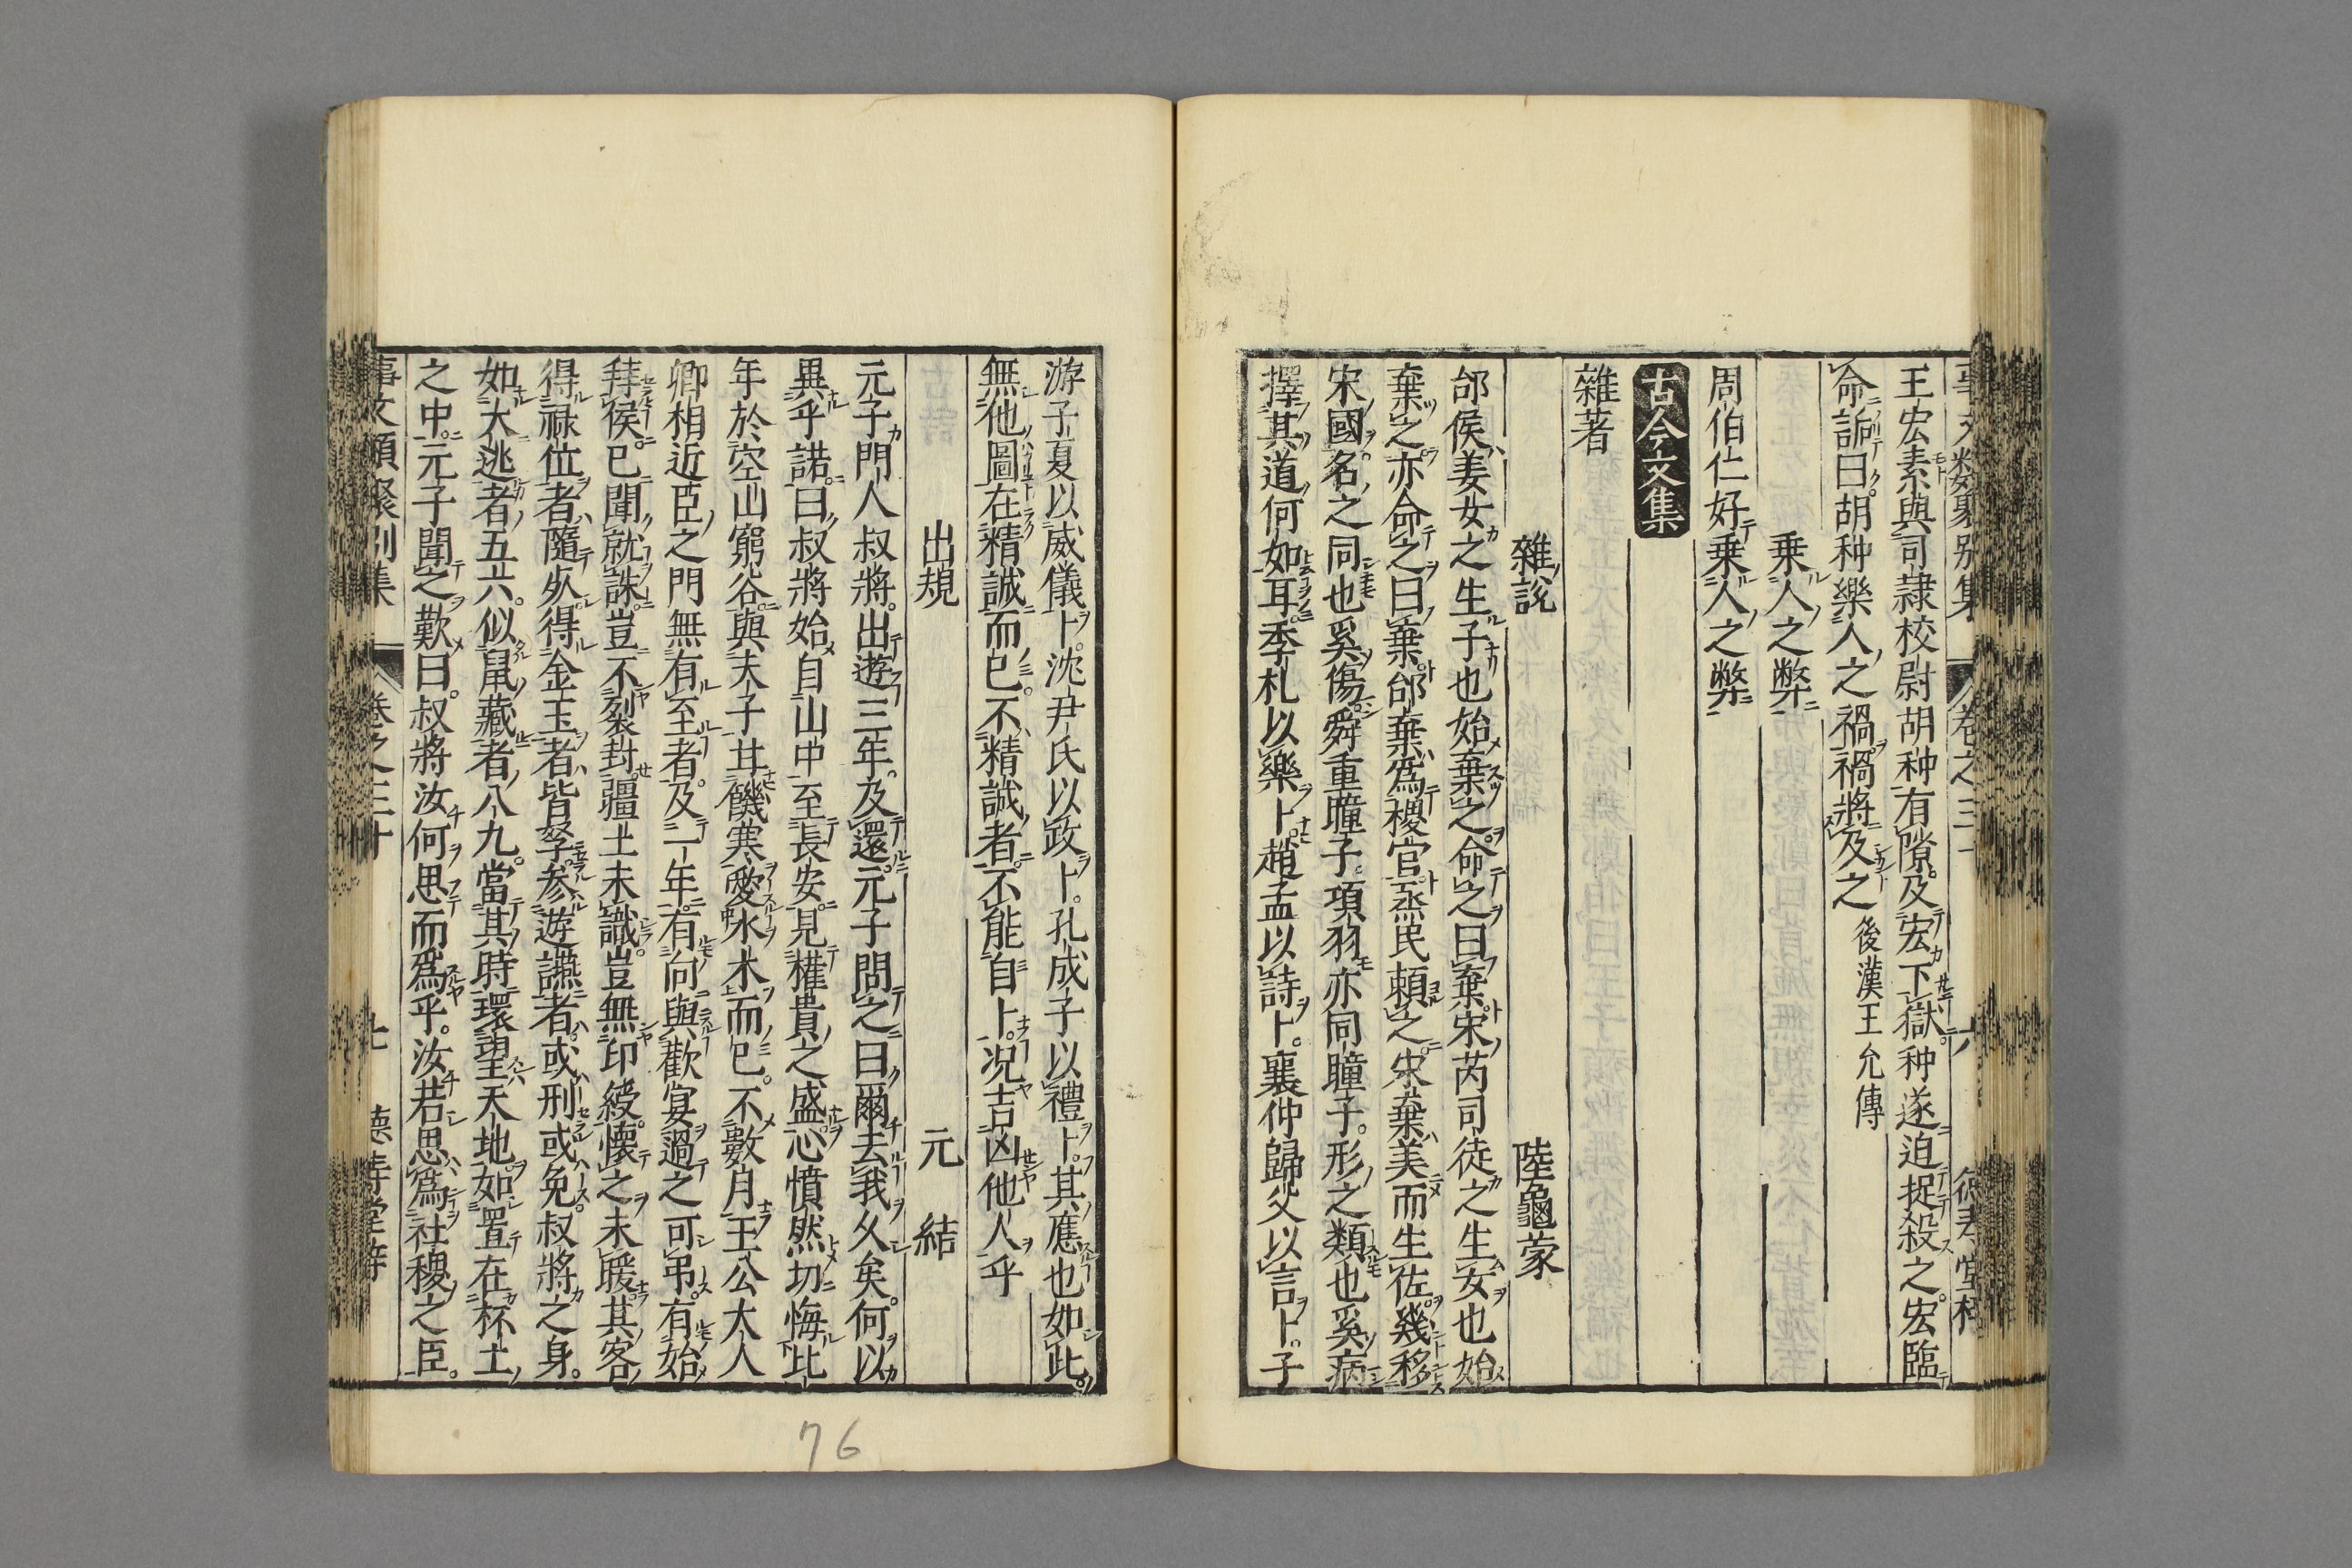 王宏素與司隷校尉胡种有隙及宏下獄种遂迫捉殺之宏臨
命詬曰胡种樂人之禍禍將及之後漢王允傳
乗人之弊
周伯仁好乗人之弊
古今文集
雜著
雜說 陸龜蒙
郃侯姜女之生子也始棄之命之曰棄宋芮司徒之生女也始
棄之亦命之曰棄郃棄爲稷官烝民頼之宋棄美而生佐幾移
宋國名之同也奚傷舜重瞳子項羽亦同瞳子形之類也奚病
擇其道何如耳季札以樂卜趙孟以詩卜襄仲歸父以言卜子
游子夏以威儀卜沈尹氏以政卜孔成子以禮卜其應也如此
無他圖在精誠而已不精誠者不能自卜况吉凶他人乎
出規 元結
元子門人叔將出遊三年及還元子問之曰爾去我久矣何以
異乎諾曰叔將始自山中至長安見權貴之盛心憤然切悔比
年於空山窮谷與夫子甘饑寒愛水木而已不數月王公大人
卿相近臣之門無有至者及一年有向與歡宴過之可吊有始
拜侯已聞就誅豈不裂封疆土未識豈無印綬懐之未暖其客
得禄位者隨死得金玉者皆孥参遊讌者或刑或免叔將之身
如犬逃者五六似鼠藏者八九當其時環望天地如置在杯土
之中元子聞之歎曰叔將汝何思而爲乎汝若思爲社稷之臣
事文類聚別集 卷之三十
76